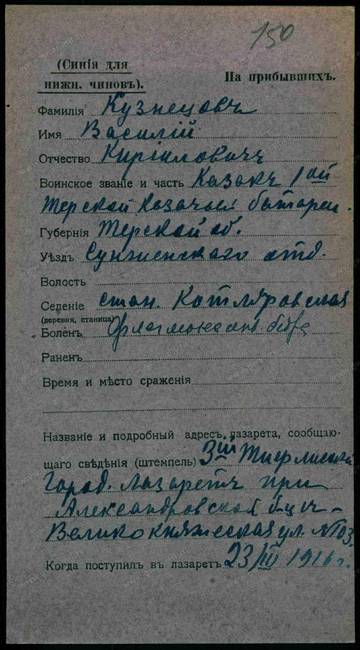 150
(Синія для
нижн. чиновъ).
На прибывшихъ.
Фамилія Кузнецовъ
Имя Василій
Отчество Киріиловичъ
Воинское званіе и часть Казакъ 1ой
Терской Казачьей батареи
Губернія Терской об.
Уѣздъ Сунженскаго отд.
Волость
Серение стан. Котляровская
(деревня, станица)
Боленъ Флегмона бедра
Раненъ
Время и мѣсто сраженія
Названіе и подробный адресъ лазарета, сообщаю-
щаго свѣдѣнія (штемпель) 3ій Тифлисскій
Город. лазаретъ при
Александровской б-цѣ
Великокняжеская ул. №103
Когда поступилъ въ лазаретъ 23/III 1916 г.